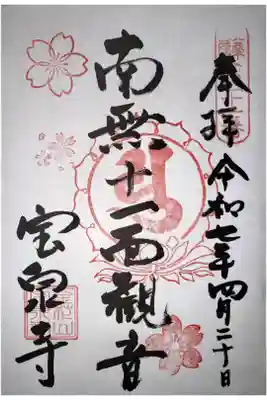 奉拝 令和七年四月二十日
南無十一面観音
宝泉寺